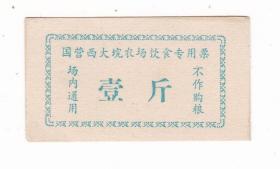 国营西大坑农场饮食专用票
场内通用
壹斤
不作购粮